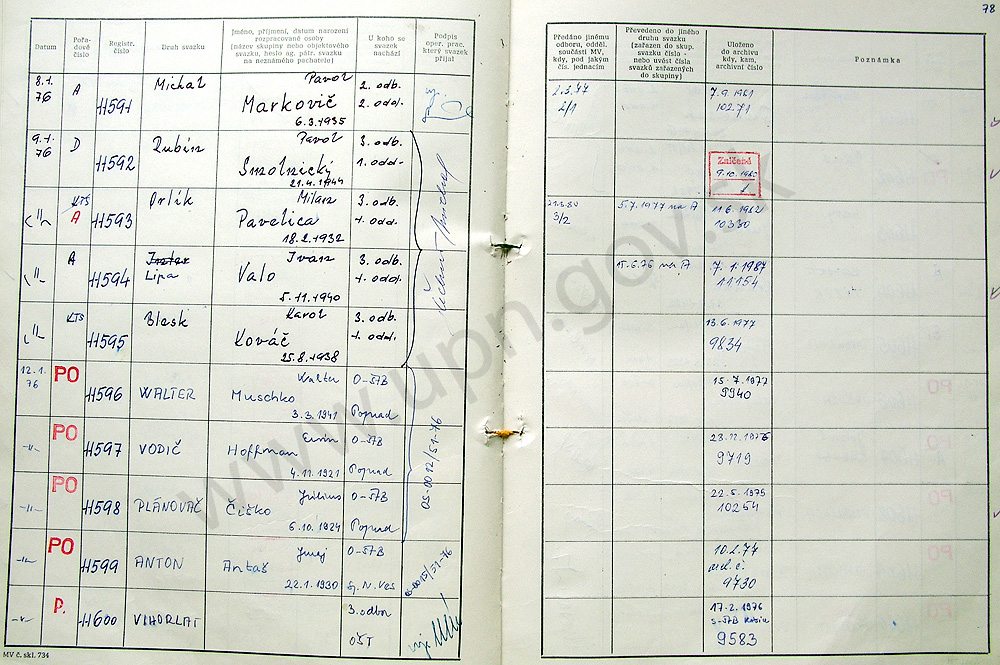 78
Datum
Pořadové číslo
Registr. číslo
Druh svazku
Jméno, příjmení, datum narození rozpracované osoby (název skupiny nebo objektového svazku, heslo ag. pátr. svazku na neznámého pachatele)
U koho se svazek nachází
Podpis oper. prac. který svazek přijal
Předáno jinému odboru, odděl. součásti MV, kdy, pod jakým čís. jednacím
Převedeno do jiného druhu svazku (zařazen do skup. svazku číslo - nebo uvést čísla svazků zařazených do skupiny)
Uloženo do archivu kdy, kam, archivní číslo
Poznámka
8.1. 76 A 11591 Michal Pavol 2. odb.
Markovič 2. odd.
6.3.1935
7.9.1981
10271
9.1. 76 D 11592 Rubín Pavol 3. odb.
Smolnický 1. odd.
21.4.1944
Zničené
9.10.1980
-"- KTS A 11593 Orlík Milan 3. odb.
Pavelica 1. odd.
18.2.1932
3/2
5.7.1977 na A
11.6.1982
10330
-"- A 11594 Lipa Ivan 3. odb.
Valo 1. odd.
5.11.1940
15.6.76 na A
7.1.1987
11154
-"- KTS 11595 Blesk Karol 3. odb.
Kováč 1. odd.
25.8.1938
13.6.1977
9834
12.1. 76 PO 11596 WALTER Walter O-ŠTB
Muschko
3.3.1941 Poprad
15.7.1977
9940
-"- PO 11597 VODIČ Ervin O-ŠTB
Hoffman
4.11.1921 Poprad
9719
-"- PO 11598 PLÁNOVAČ Július O-ŠTB
Čiško
6.10.1924 Poprad
22.5.1975
10254
OS-0012/51-76
-"- PO 11599 ANTON Juraj O-ŠTB
Antaš
22.1.1930 Sp. N. Ves
10.2.77
9730
OS-0015/51-76
-"- P. 11600 VIHORLAT 3. odbor
OŠT
17.2.1976
9583
MV č. skl. 734
www.upn.gov.sk